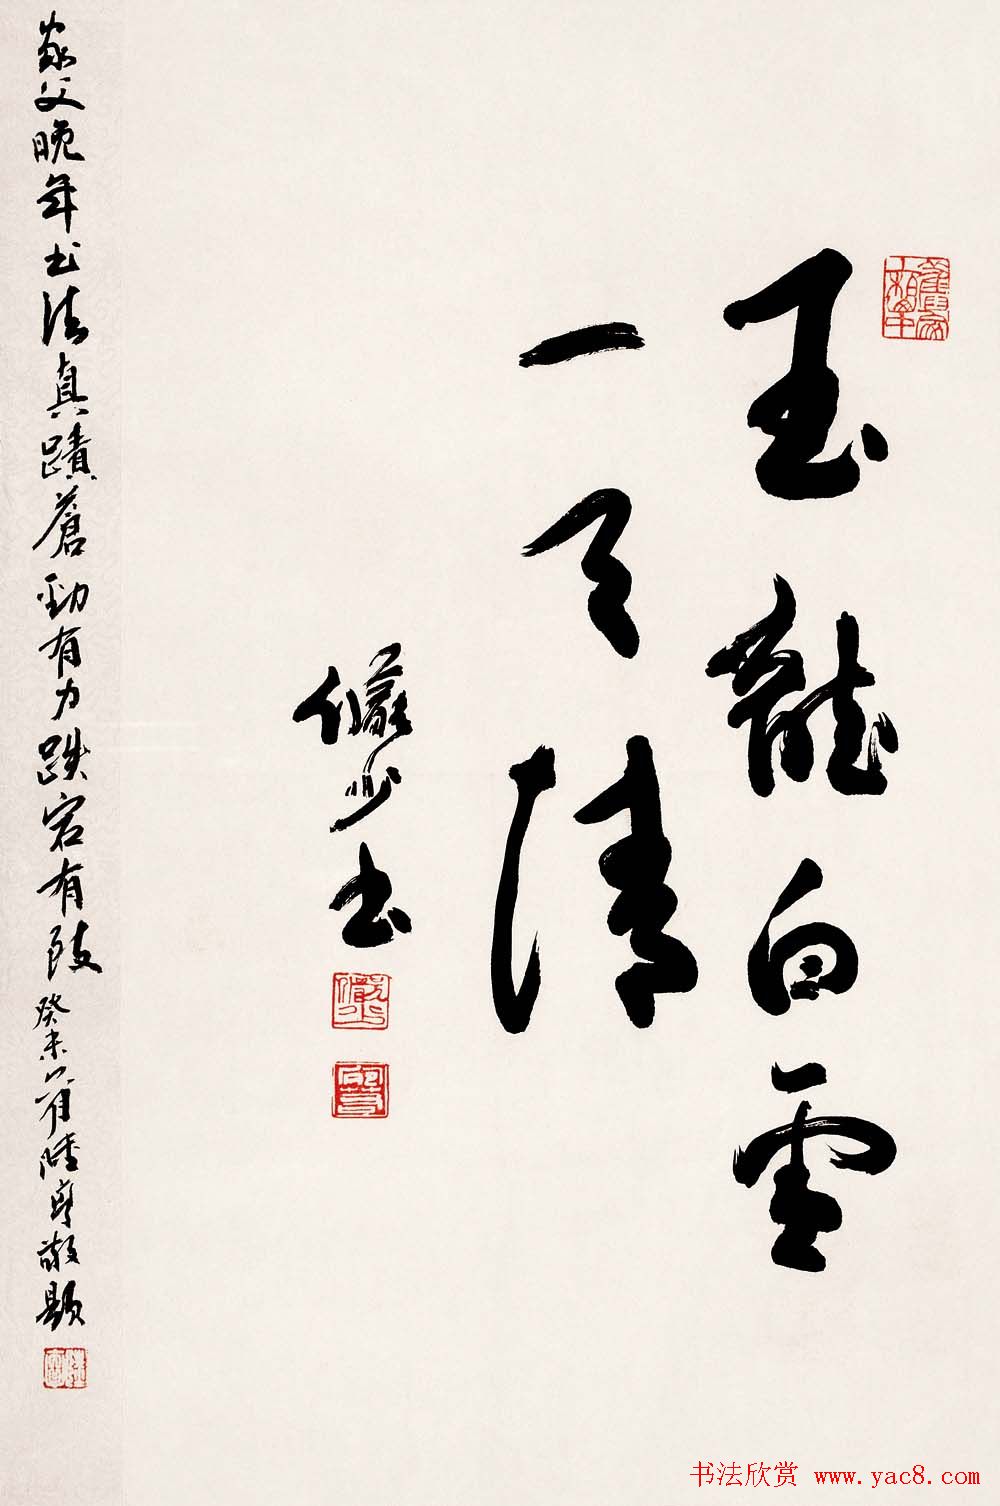 玉龍白雪
一天清
儼少書
家父晚年书法真蹟蒼勁有力跌宕有致癸未陸亨敬題
书法欣赏 www.yac8.com